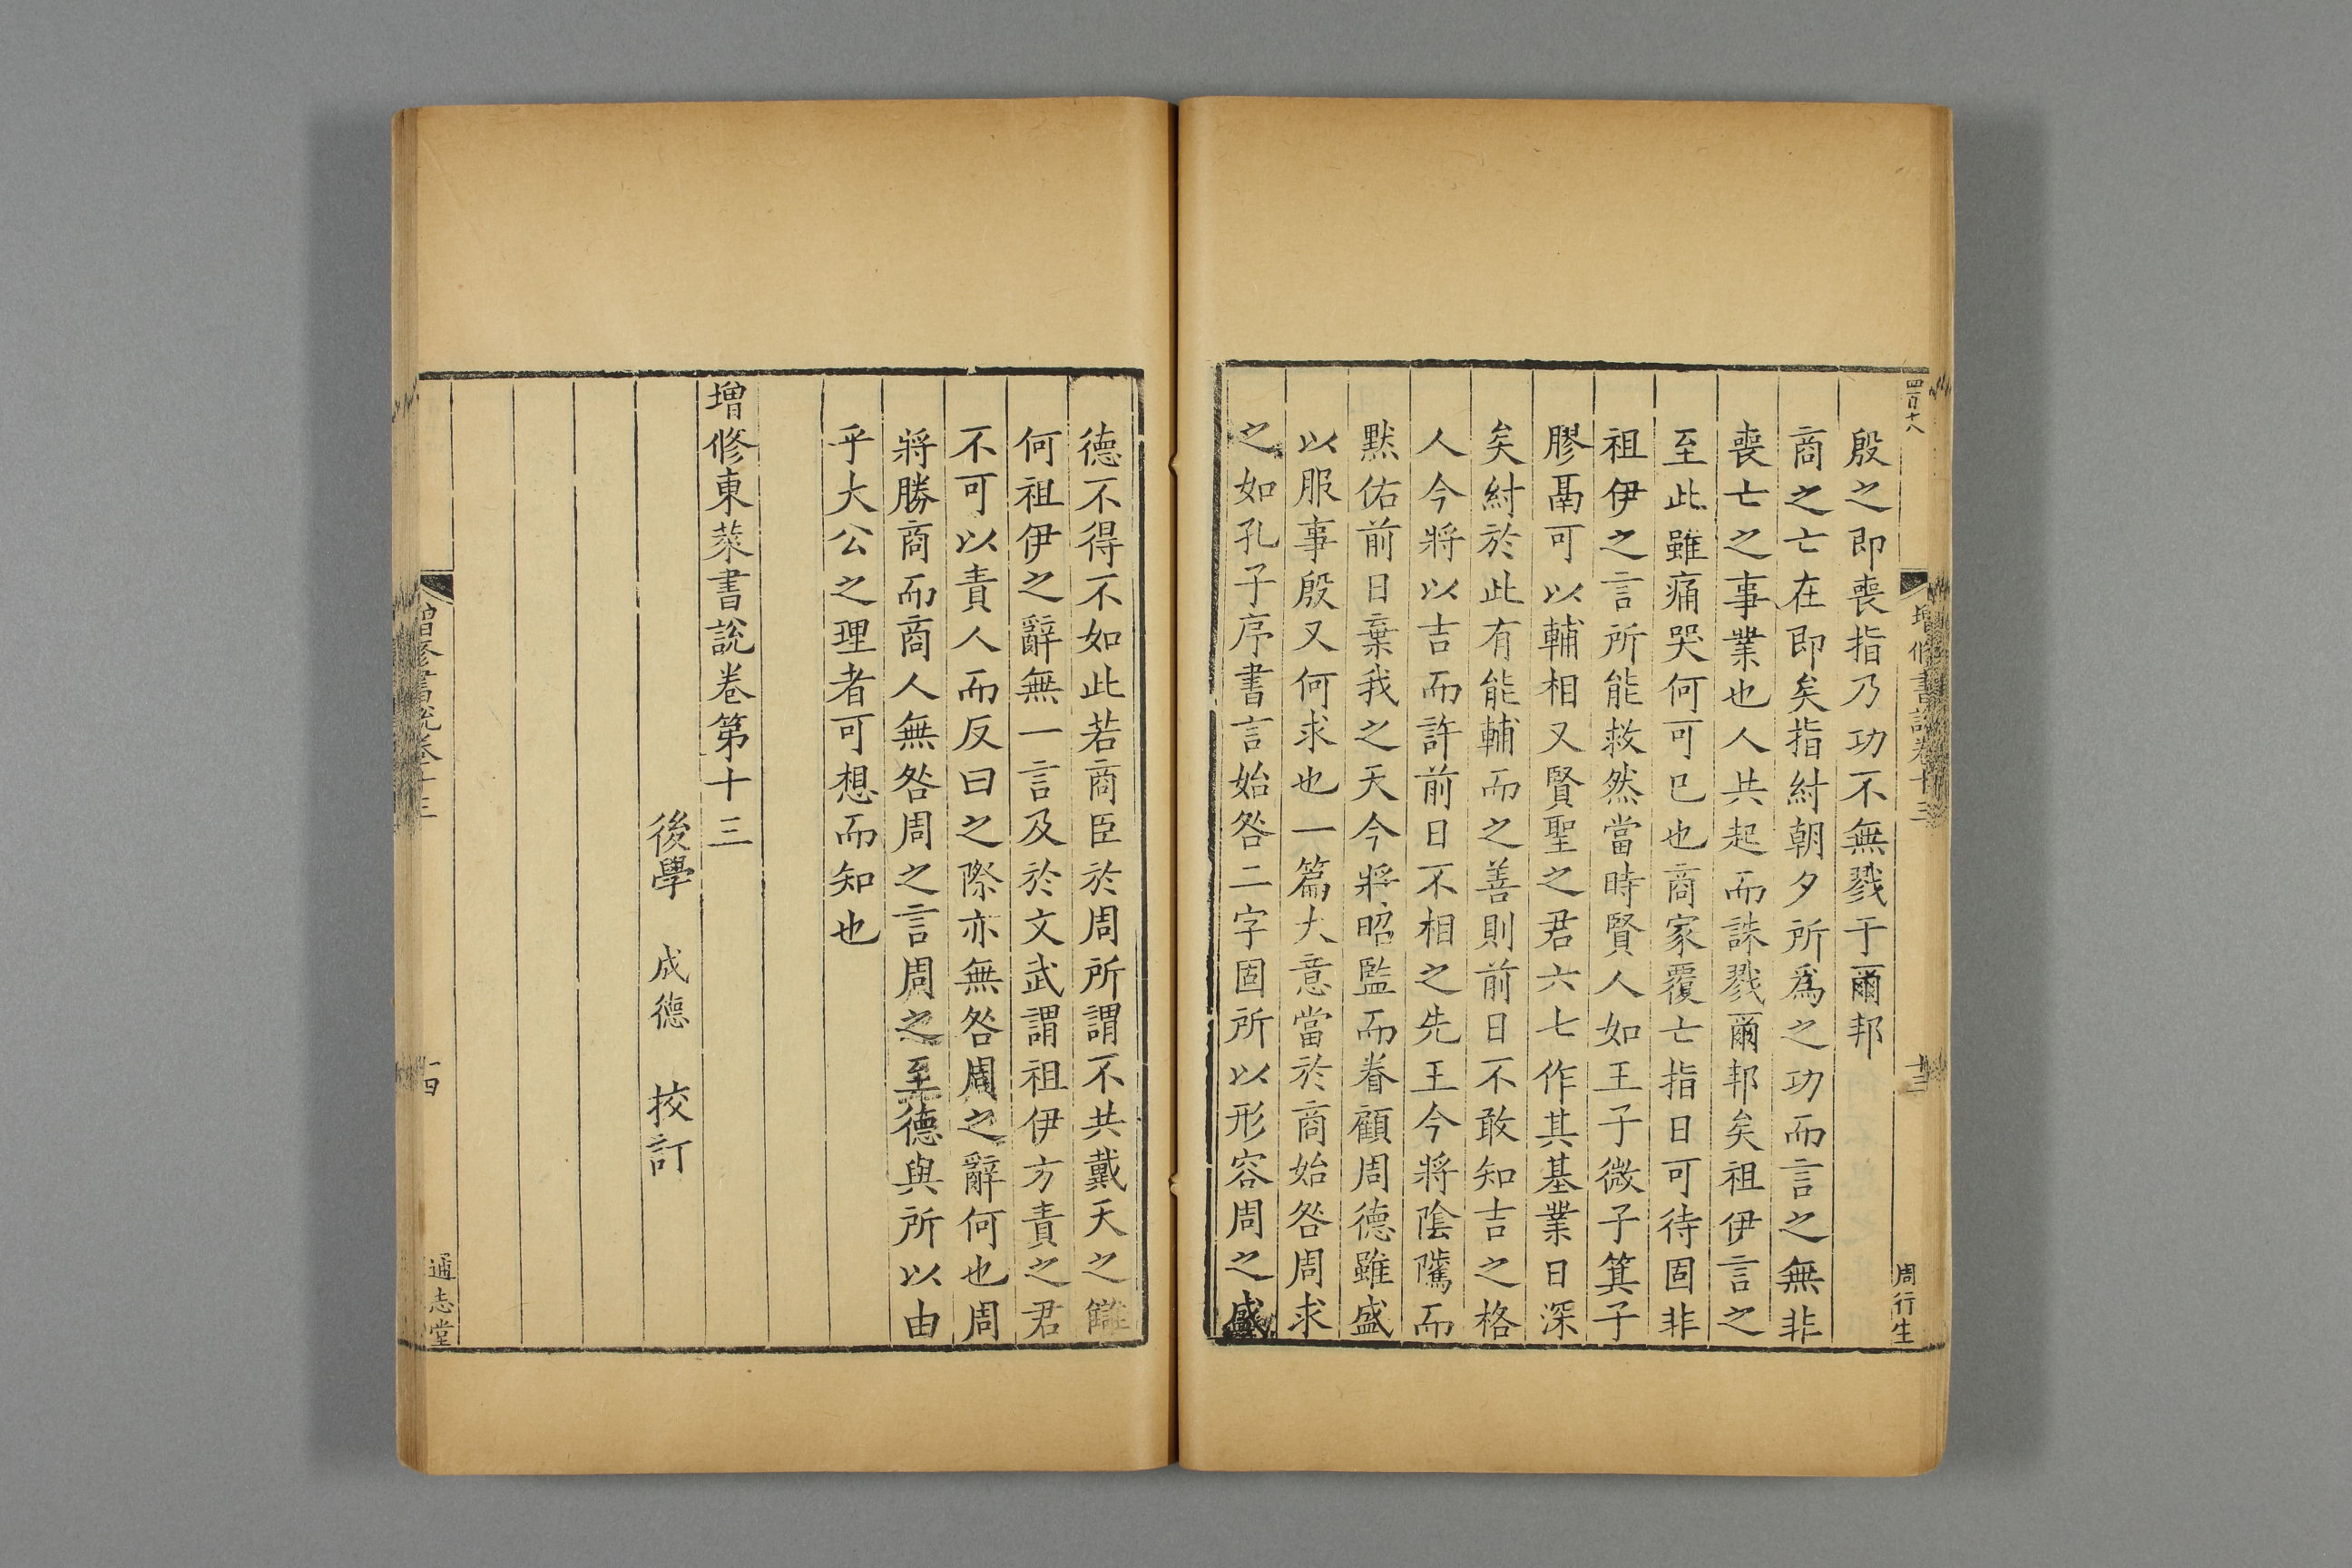 四百十八
增修書說卷十三
十三
周行生
殷之即喪指乃功不無戮于爾邦
商之亡在即矣指紂朝夕所爲之功而言之無非
喪亡之事業也人共起而誅戮爾邦矣祖伊言之
至此雖痛哭何可已也商家覆亡指日可待固非
祖伊之言所能救然當時賢人如王子微子箕子
膠鬲可以輔相又賢聖之君六七作其基業日深
矣紂於此有能輔而之善則前日不敢知吉之格
人今將以吉而許前日不相之先王今將隂騭而
默佑前日棄我之天今將昭監而眷顧周德雖盛
以服事殷又何求也一篇大意當於商始咎周求
之如孔子序書言始咎二字固所以形容周之盛
德不得不如此若商臣於周所謂不共戴天之讎
何祖伊之辭無一言及於文武謂祖伊方責之君
不可以責人而反曰之際亦無咎周之辭何也周
將勝商而商人無咎周之言周之至德與所以由
乎大公之理者可想而知也
增修東萊書說卷第十三
後學 成德 挍訂
增修書說卷十三
十四
通志堂